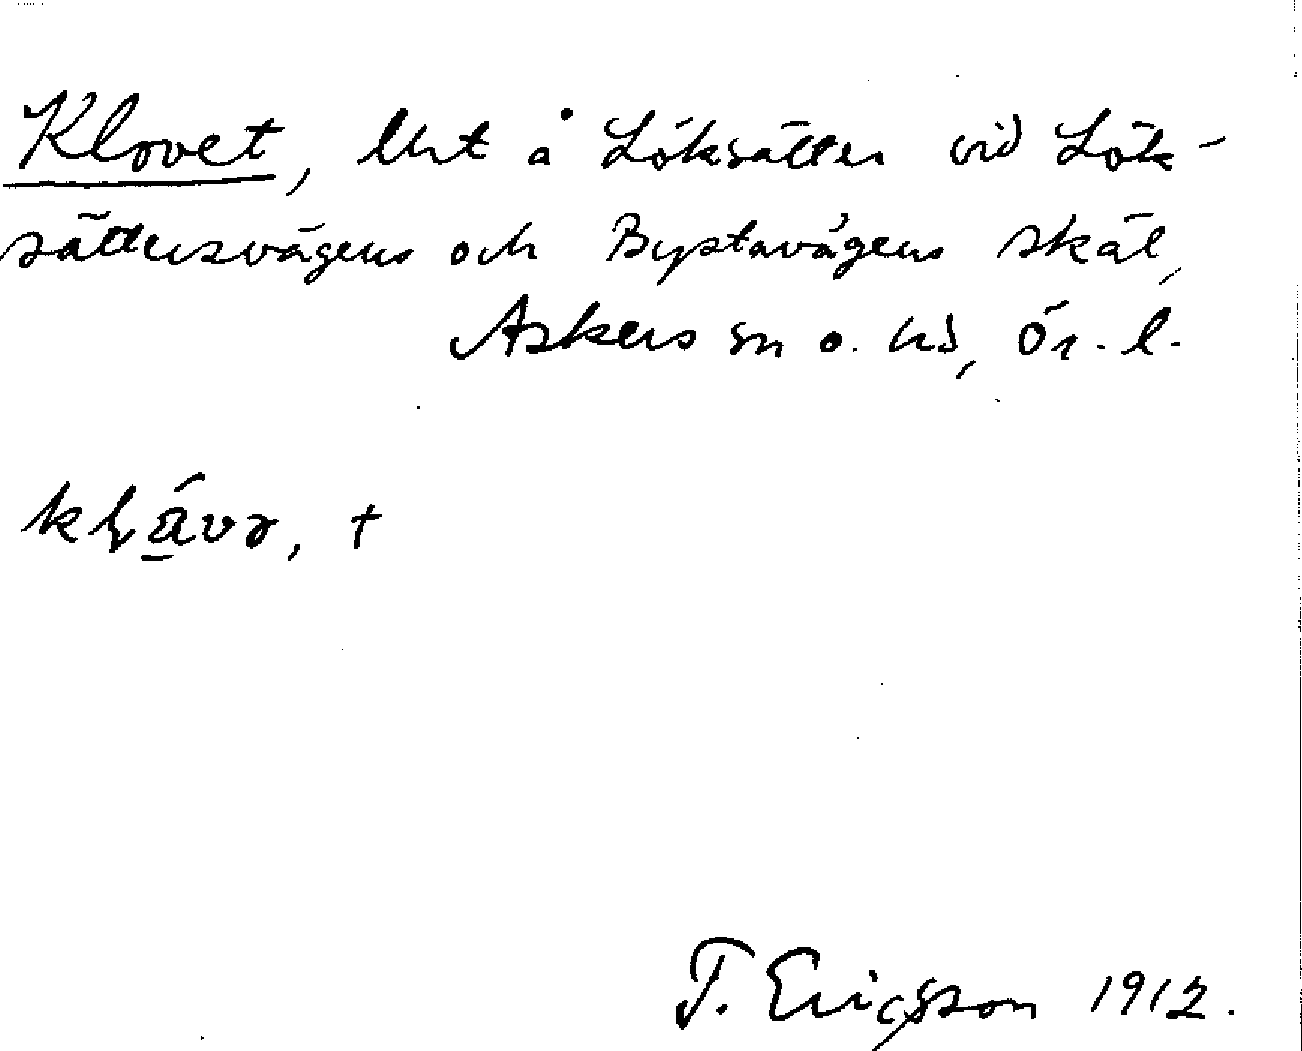 Klovet, lht å Löksätter vid Lök-
sättersvägens och Bystavägens skäl,
Askers sn o. hd, Ör. l.
T. Ericsson 1912.